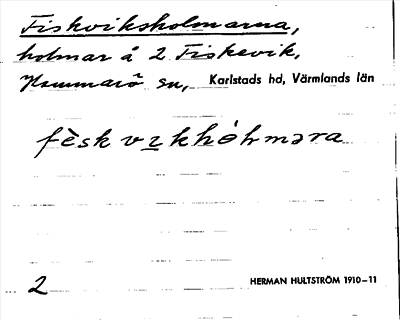 Fiskviksholmarna,
holmar å 2 Fiskevik,
Hammarö sn, Karlstads hd, Värmlands län
fèskvikhòlmara
2
HERMAN HULTSTRÖM 1910-11